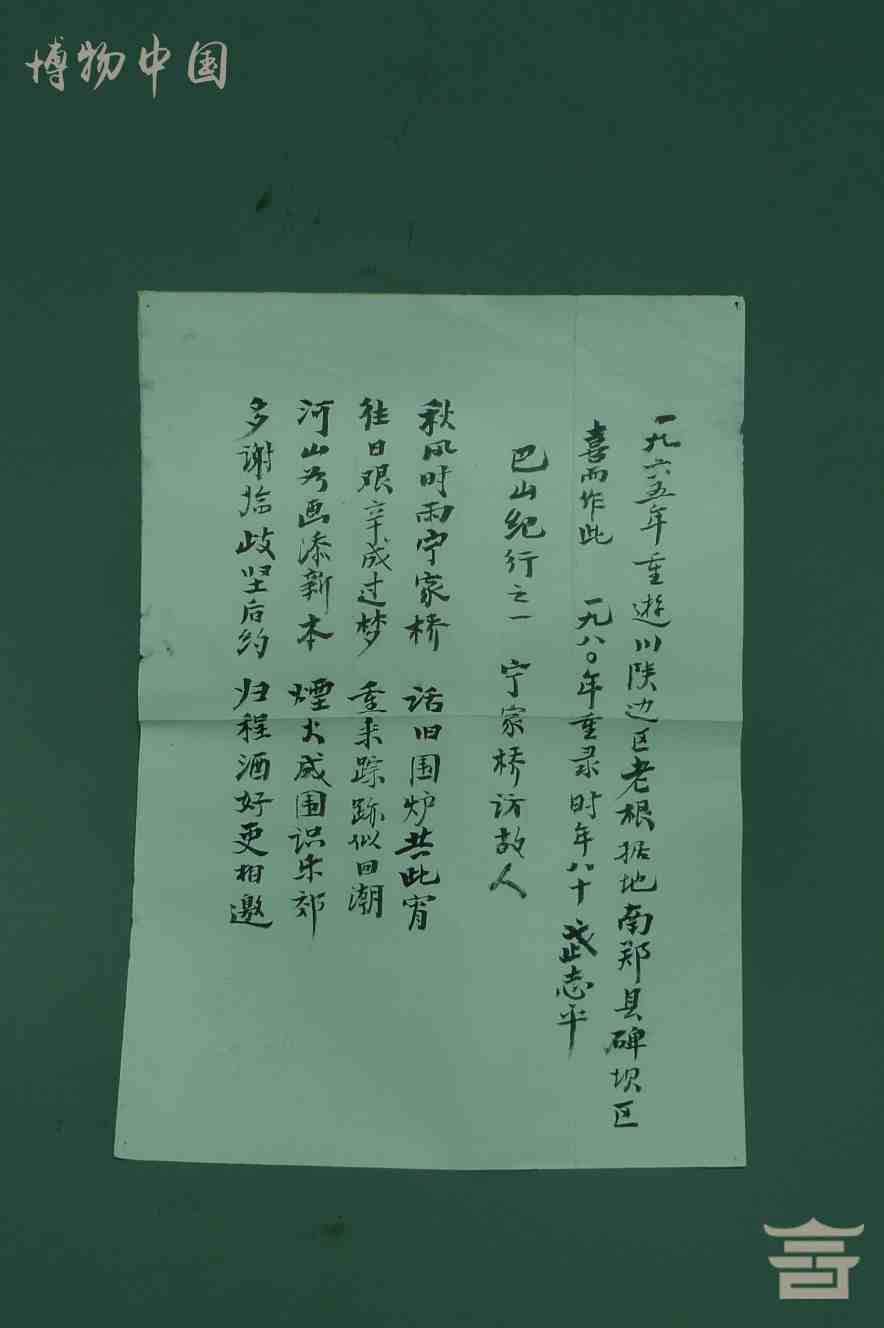 博物中国
一九六五年重遊川陕边区老根据地南郑县碑坝区
喜而作此 一九八〇年重录时年八十 武志平
巴山纪行之一 宁家桥访故人
秋风时雨宁家桥 话旧围炉共此宵
往日艰辛成过梦 重来踪跡似回潮
河山为画添新本 煙火成围识乐郊
多谢临歧坚后约 归程酒好更相邀